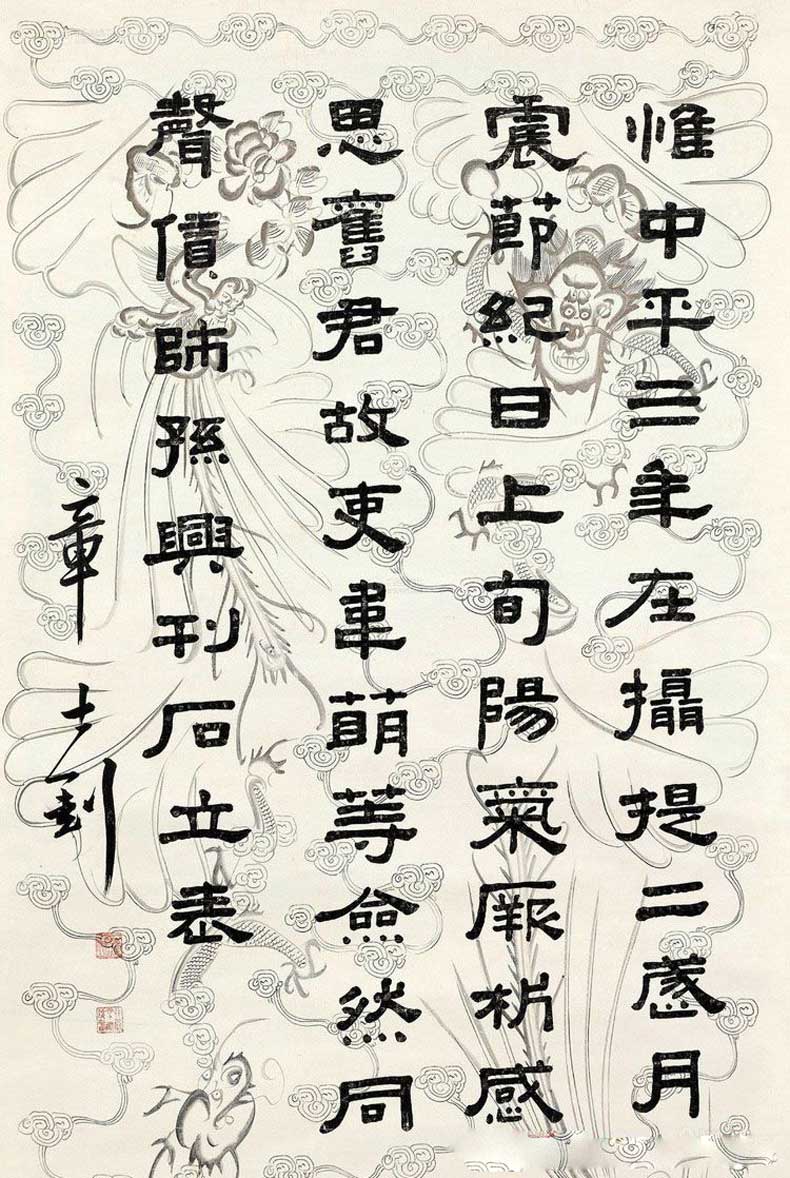 惟中平三年在攝提二歲月
震節紀日上旬陽氣厥析感
思舊君故吏韋萌等僉然同
聲賃師孫興刊石立表
章士釗